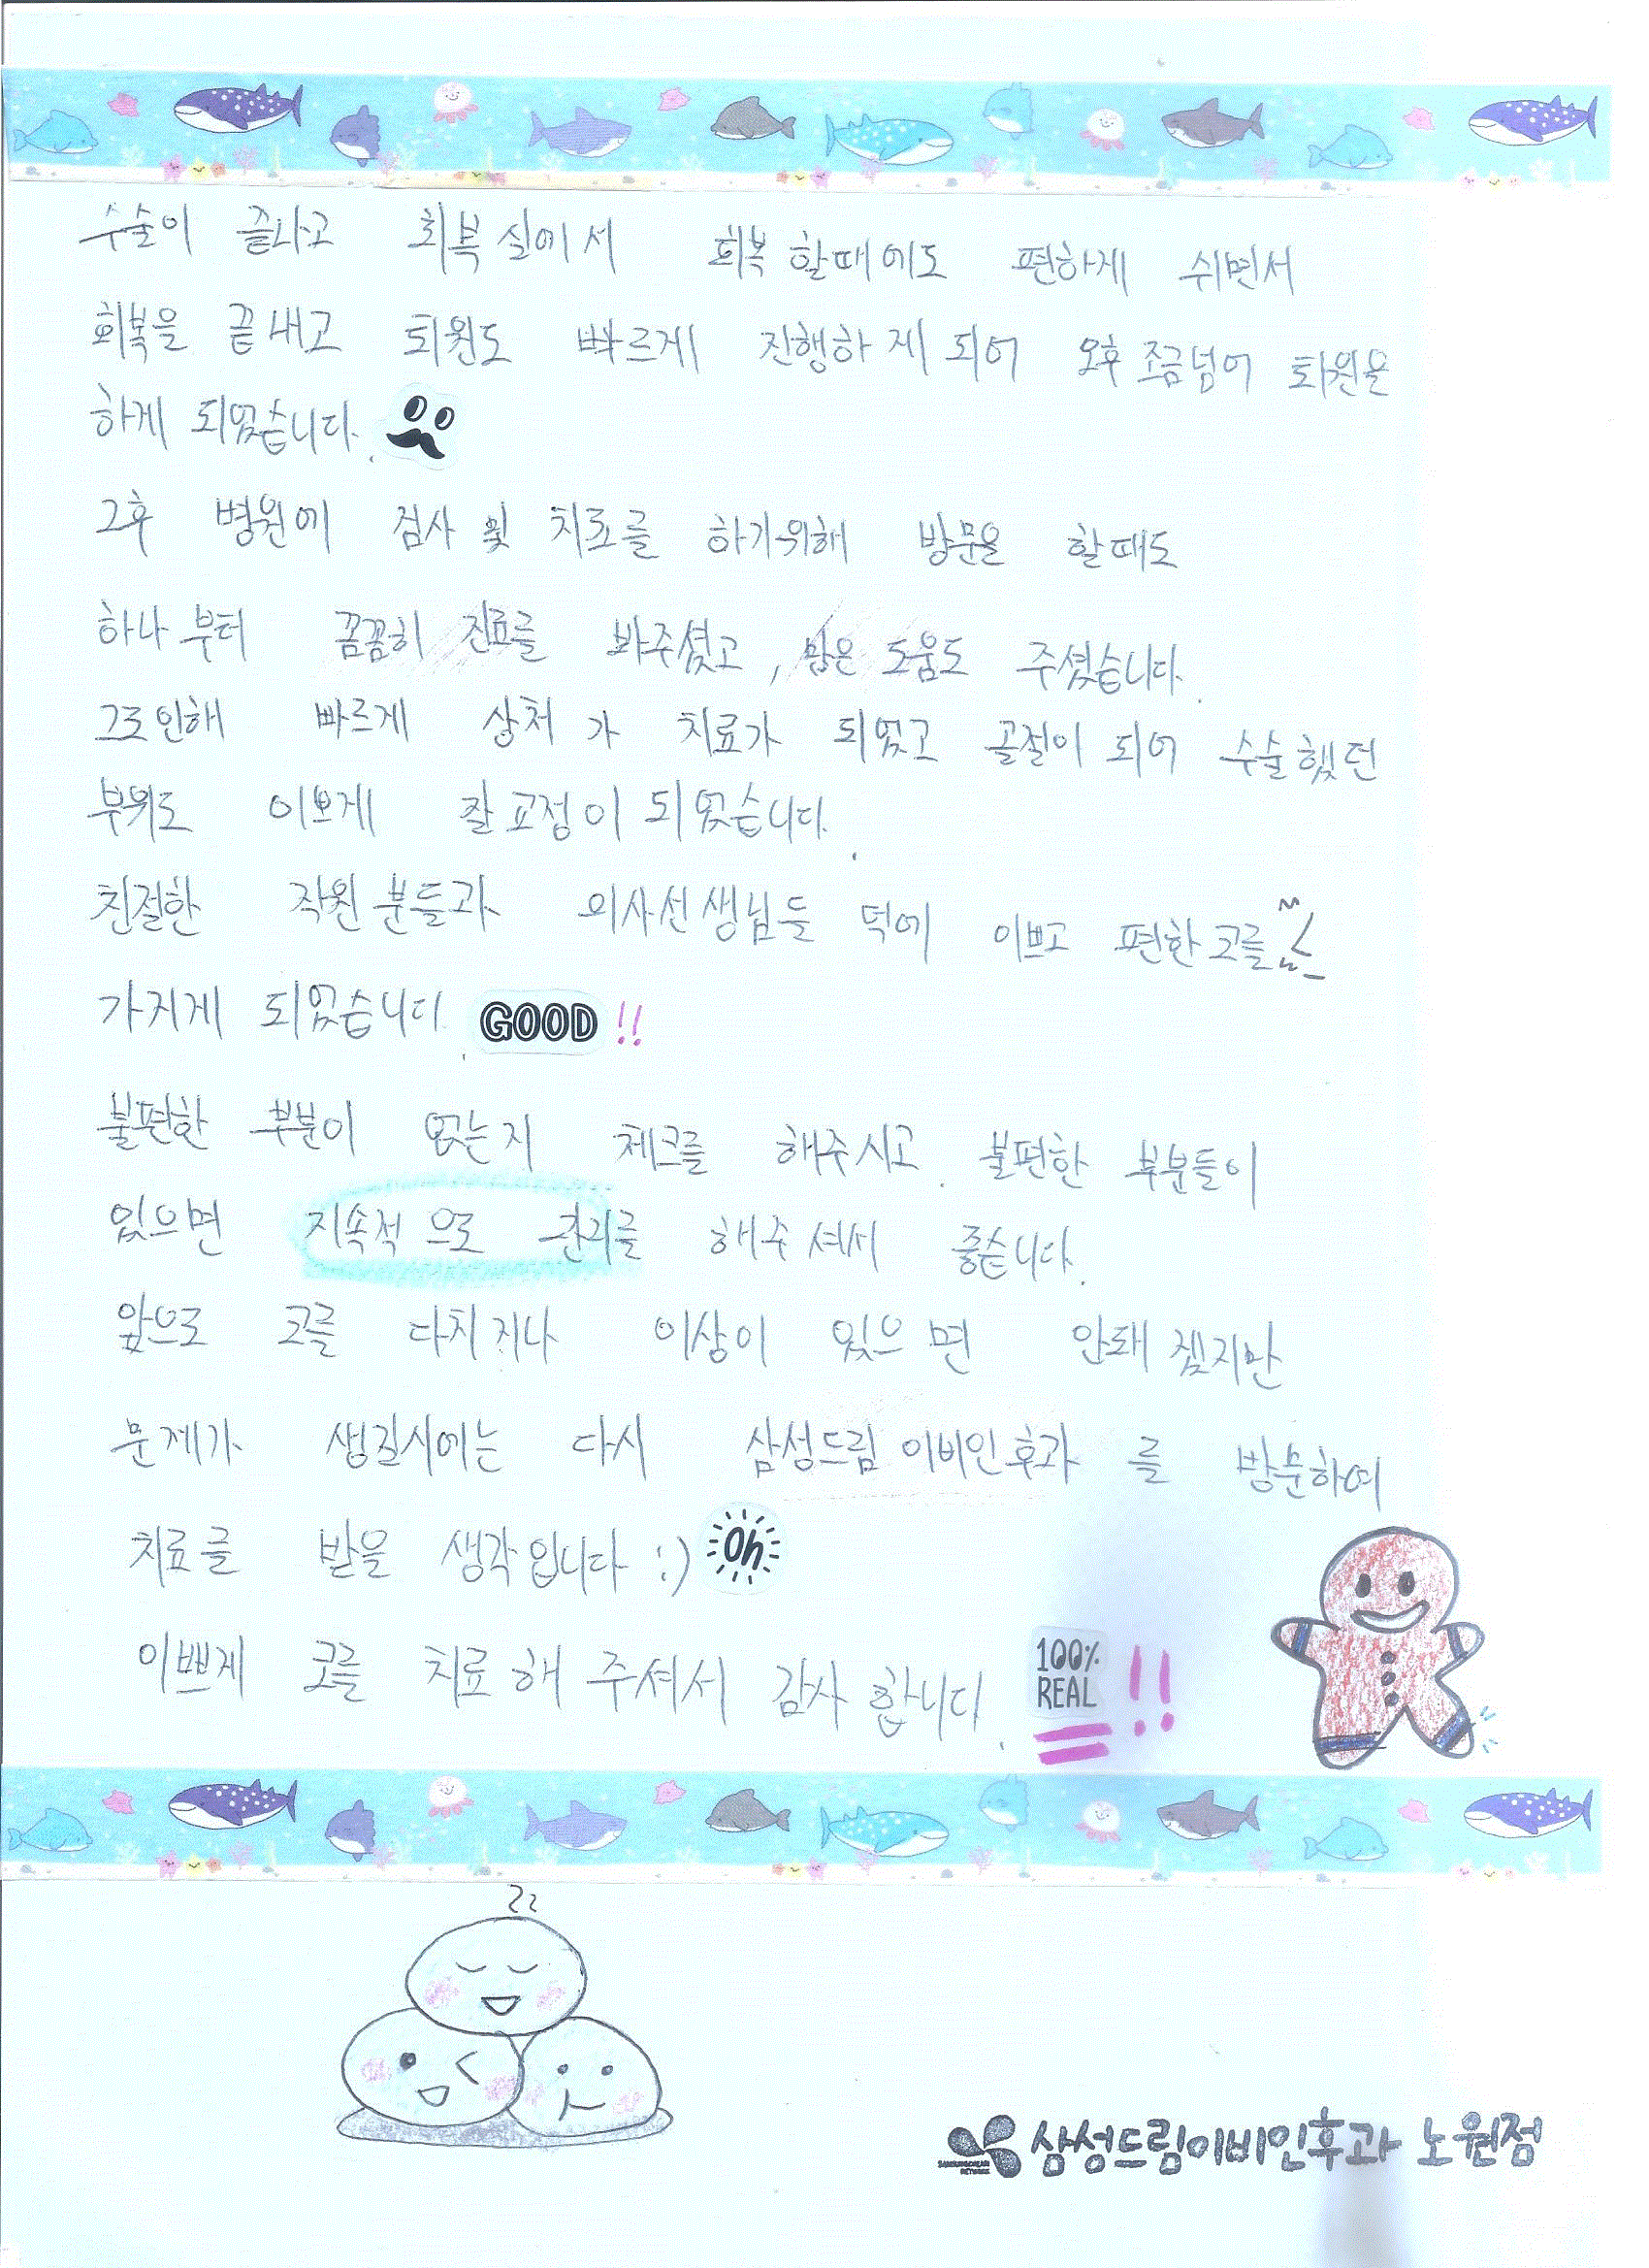 수술이 끝나고 회복실에서 회복할때에도 편하게 쉬면서
회복을 끝내고 퇴원도 빠르게 진행하게 되어 오후 조금넘어 퇴원을
하게 되었습니다.
그후 병원에 검사 및 치료를 하기위해 방문을 할때도
하나부터 꼼꼼히 진료를 봐주셨고, 많은 도움도 주셨습니다.
그로인해 빠르게 상처가 치료가 되었고 골절이 되어 수술했던
부위도 이쁘게 잘 교정이 되었습니다.
친절한 직원분들과 의사선생님들 덕에 이쁘고 편한 코를
가지게 되었습니다. GOOD!!
불편한 부분이 없는지 체크를 해주시고 불편한 부분들이
있으면 지속적으로 관리를 해주셔서 좋습니다.
앞으로 코를 다치거나 이상이 있으면 안돼겠지만
문제가 생길시에는 다시 삼성드림이비인후과를 방문하여
치료를 받을 생각입니다 :) Oh
이쁘게 코를 치료해 주셔서 감사합니다. 100% REAL !!
삼성드림이비인후과 노원점